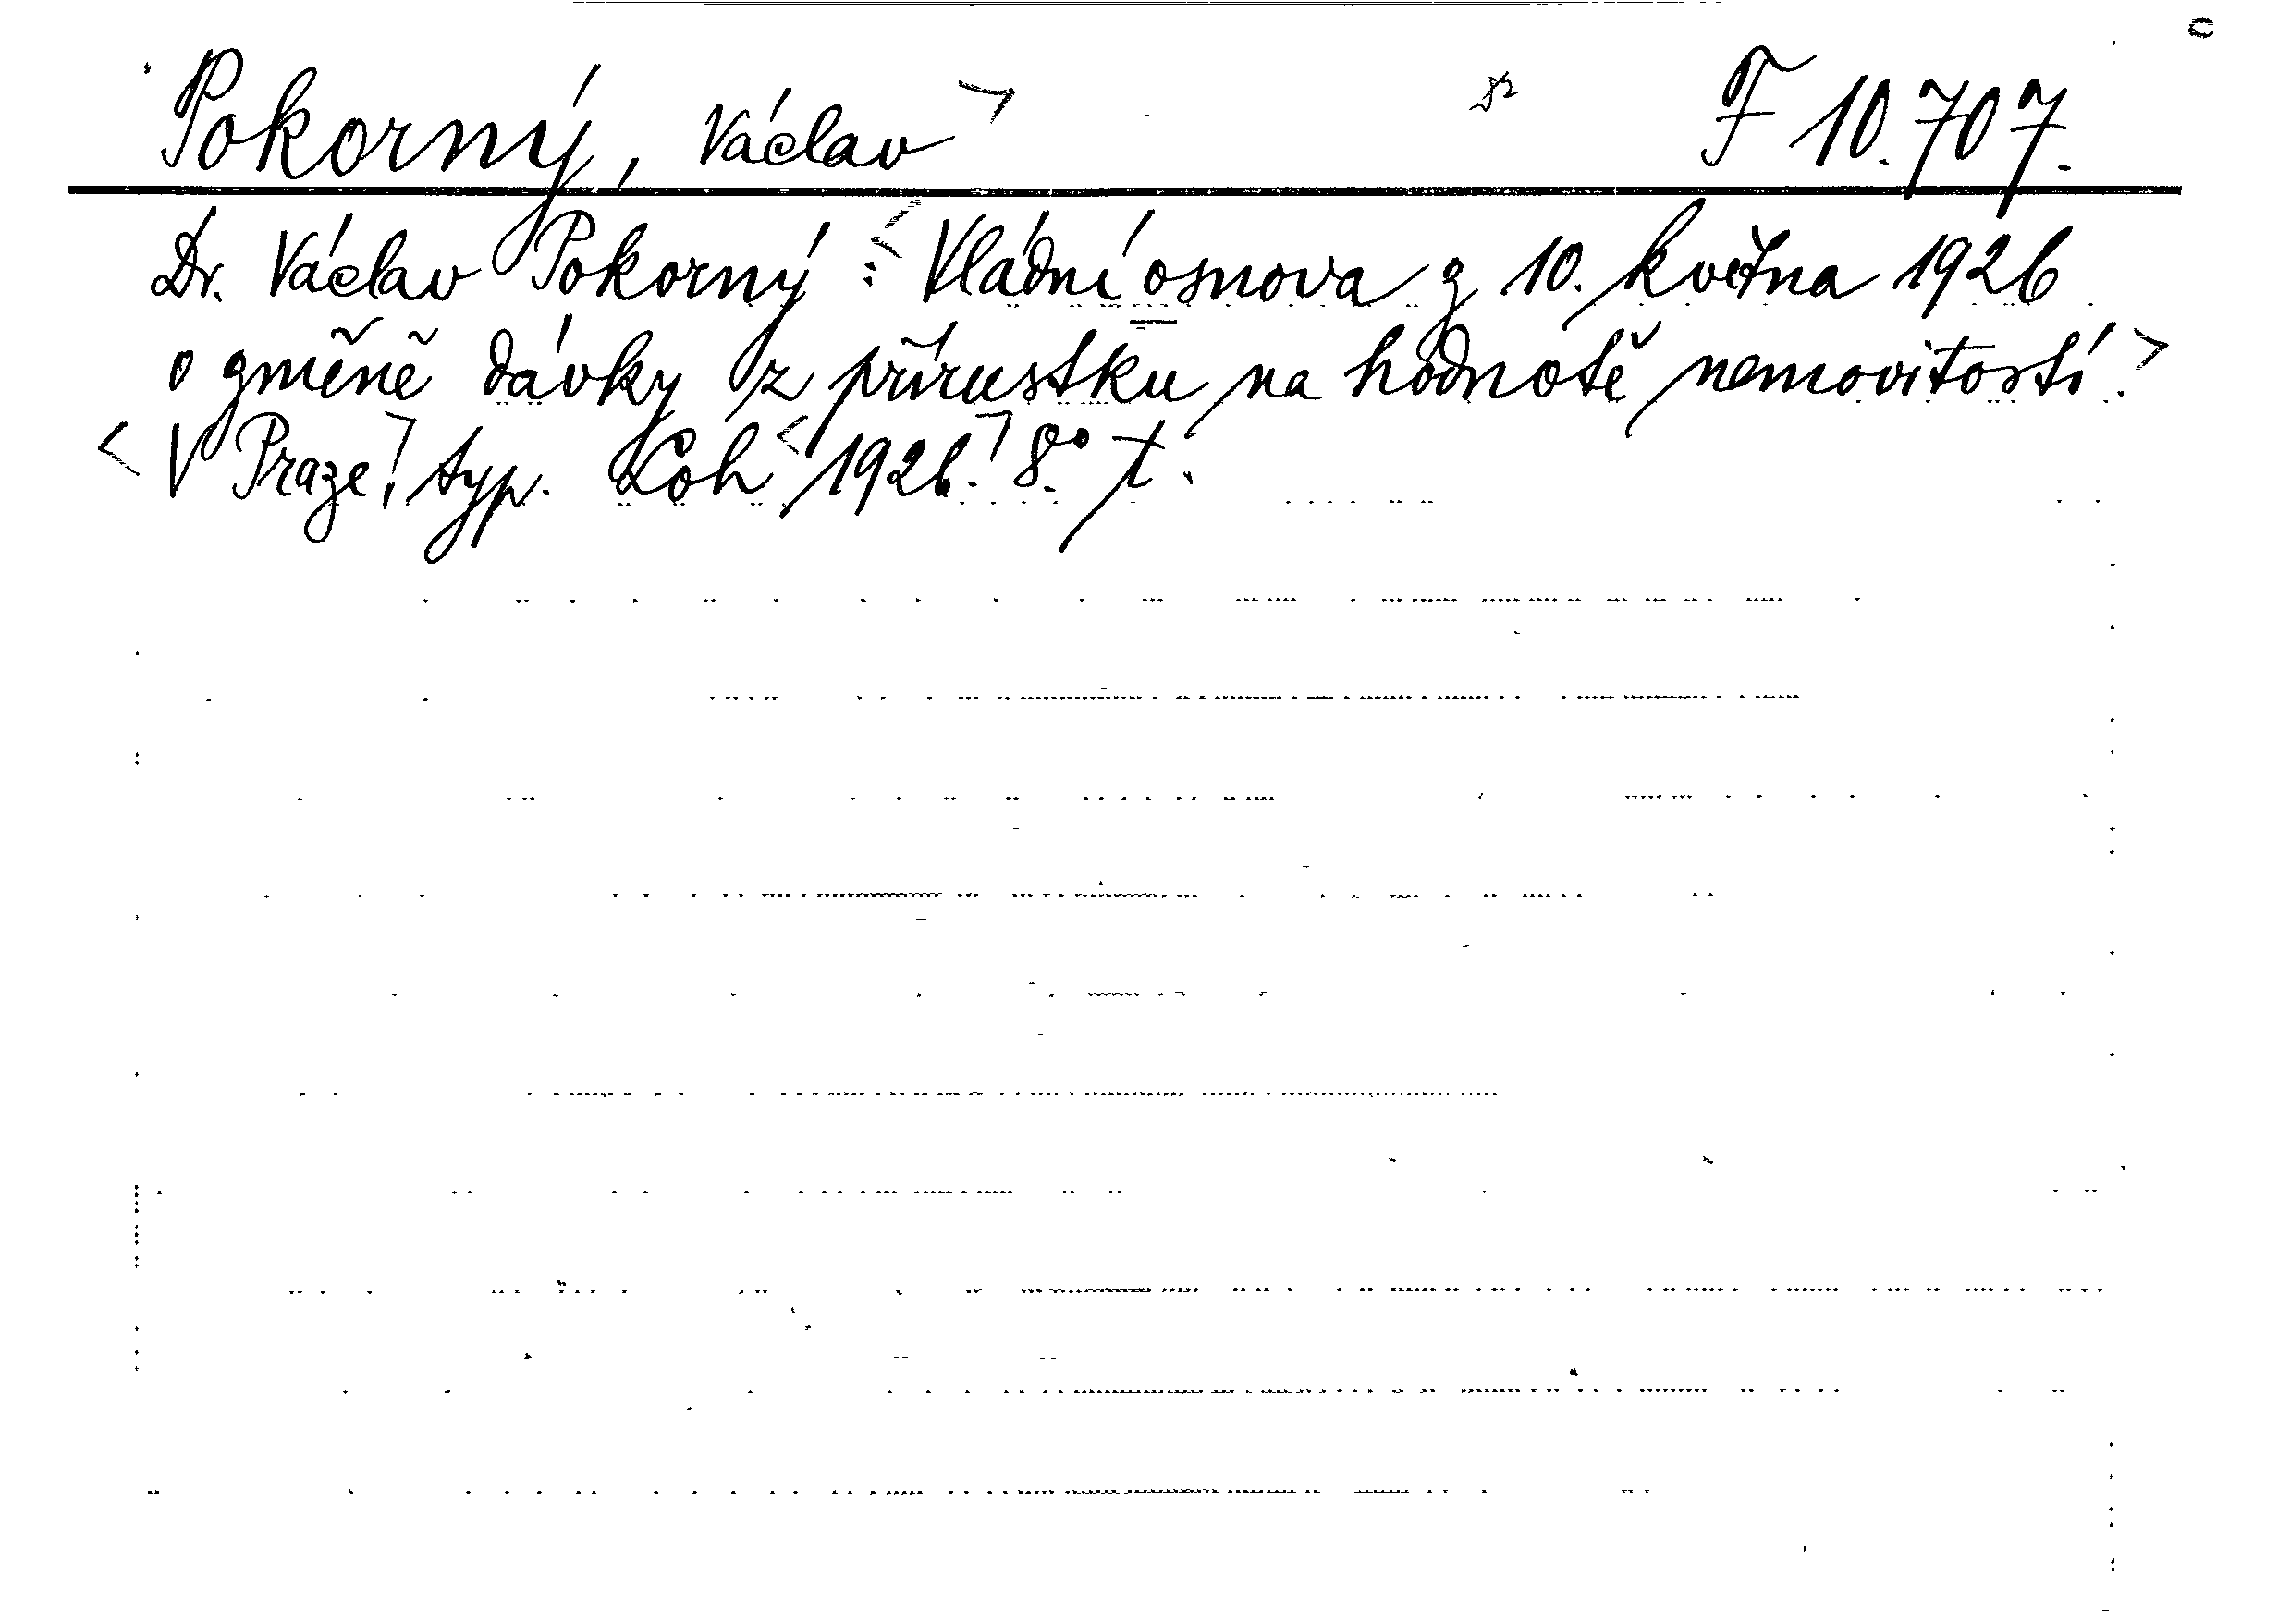 Pokorný, Václav F 10.707.
Dr. Václav Pokorný : Vládní osnova z 10. května 1926
o změně dávky z přírustku na hodnotě nemovitostí.
V Praze, typ. Loh 1926. 8° t.